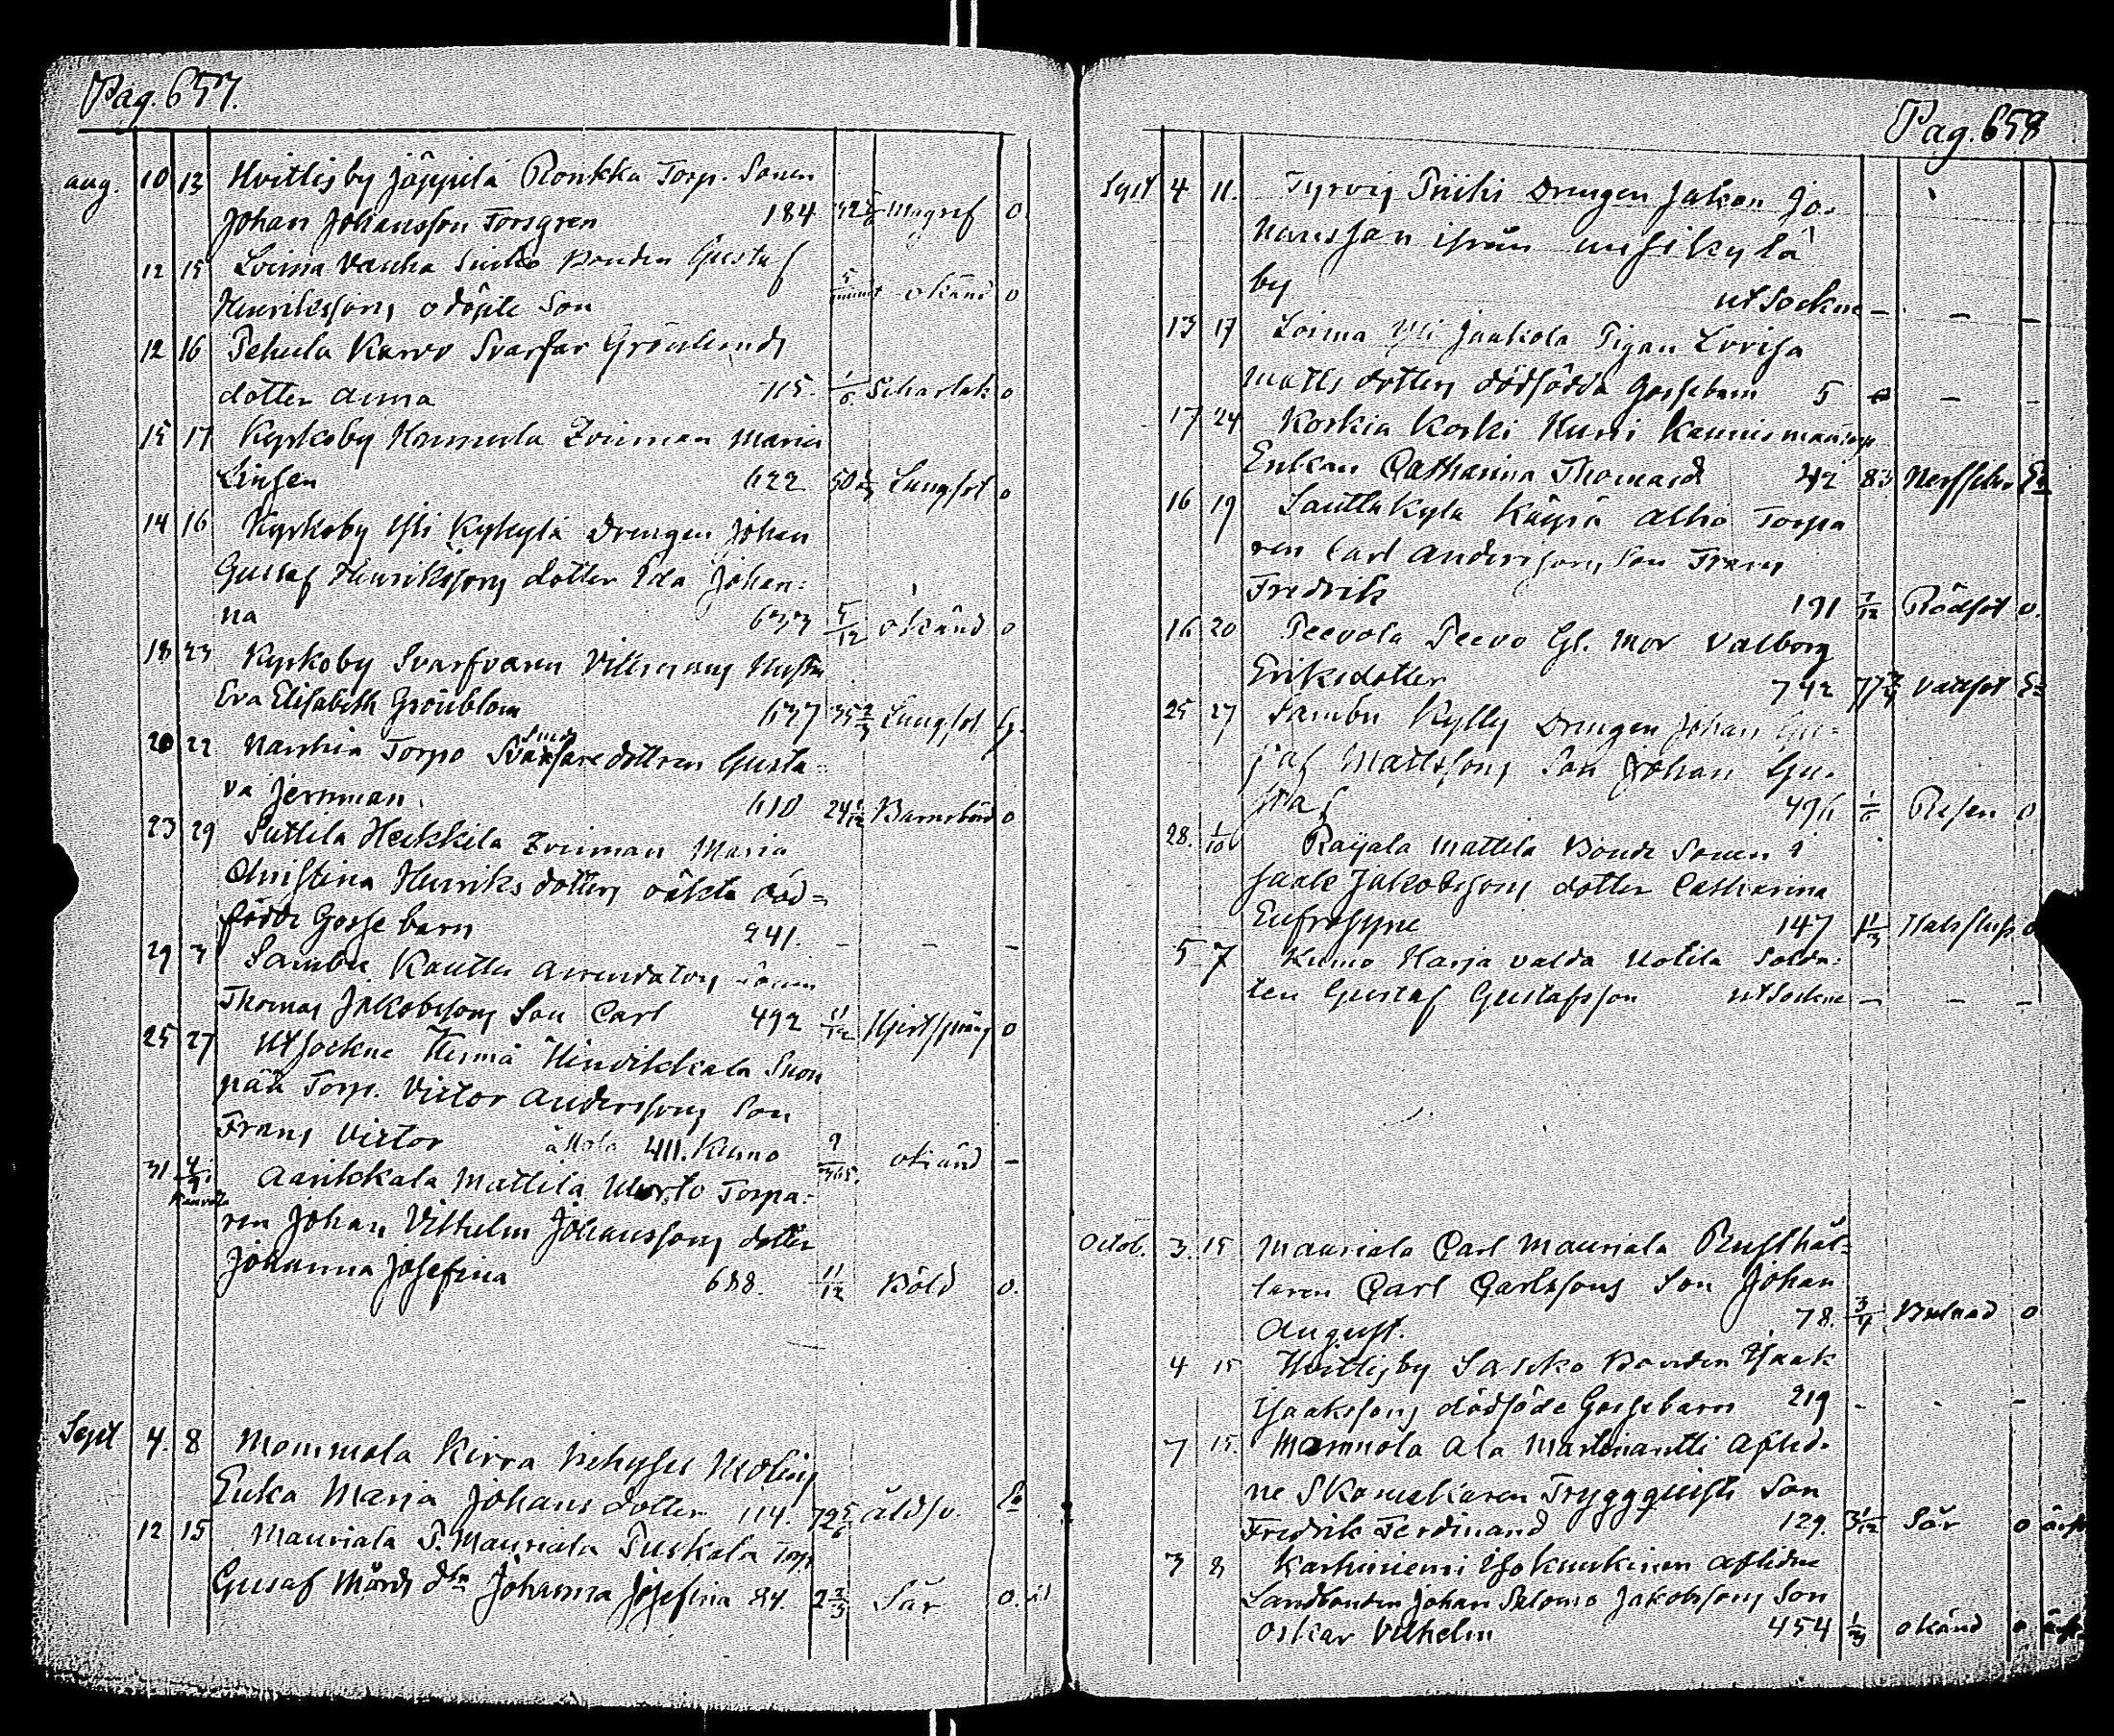 Pag. 657.
aug. 10 13 Hvittisby Jöppilä Ronkka Torp. Sonen
Johan Johansson Forsgren 184 Magref 0
12 15 Loima Vanha Bonden Gustaf
Henrikssons odöpte Son okänd 0
12 16 Pehula Karvo Svarfar Grönlunds
dotter anna 715. Scharlak 0
15 17 Kyrkoby Hommula Maria
622 50 Lungsot 0
14 16 Kyrkoby Yli Kyhylä Drengen Johan
Gustaf Henrikssons dotter Ida Johan:
na 633 5/12 okänd 0
18 23 Kyrkoby Svarfvaren Hustru
Eva Elisabeth Grönblom 627 35 2/3 Lungsot
20 22 Torpo dottren Gusta=
va Jernman. 610 24 Barnsbörd 0
23 29 Suttila Heikkilä Maria
Christina Henriks dotters oäkta död=
födde Gosse barn 241. - - -
29 3 Sambu Kauttu arrendators
Thomas Jakobssons Son Carl 492 11/12 0
25 27 Utsockne Hinrikkala
pää Torp. Victor Anderssons Son
Frans Victor 411. Kumo 9/365. okänd -
31 Aarikkala Mattila Torpa=
ren Johan Vilhelm Johanssons dotter
Johanna Josefina 688. 11/12 Böld 0.
Sept 4. 8 Mommola Kirra
Enka Maria Johans dotter 114. 72 5/6 äldso.
12 15 Mauriala P. Mauriala Puskala Torp
Gusaf Mårds Johanna Josefina 84. 2 2/3 Sår 0.
Pag. 658
Sept 4 11. Tyrvis Drengen Jo-
hansson ifrån by
utsockne - - -
13 17 Loima Yli Jaakola Pigan Lovisa
Matts dotters dödfödda Gossebarn 5 - -
17 24 Koskia Koski Kurri
Enkan Catharina Thomasd 42 83
16 19 Sauttukylä Käyrä Alho Torpa
ren Carl Anderssons Son Frans
Fredrik 191 7/12 Rödsot 0.
16 20 Peevola Peevo Gl. Mor Valborg
Eriksdotter 742 77 Vattsot
25 27 Sambu Kylly Drengen Johan Gu=
staf Mattssons Son Johan Gu-
staf 496 Risen 0
28. 1/10 Raijala Mattila Bonde Sonen I
saak Jakobssons dotter Catharina
Eufrosyne 147 Halsfluss
5 7 Kumo Harjavalda Uotila Solda:
ten Gustaf Gustafsson utsockne - - -
Octob. 3. 15 Mauriala Carl Mauriala Rusthål=
laren Carl Carlssons Son Johan
August. 78. 3/4 0
4 15 Hvittisby Sasko Bonden Isaak
Isaakssons dödföde Gossebarn 219 - - -
7 15. Mommola Ala Martinantti Aflid-
ne Skomakaren Tryggquists Son
Fredrik Ferdinand 129. 3 1/12 Sår 0
3 8 Karhiniemi Iso Kuuskinen Aflidne
Landbonden Johan Salomo Jakobssons Son
Oskar Vilhelm 454 1/3 okänd